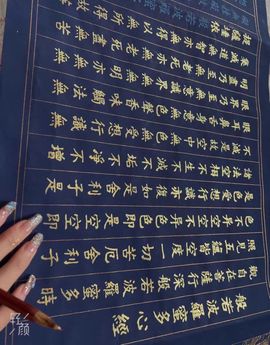 般若波羅蜜多心經
觀自在菩薩行深般若波羅蜜多時
照見五蘊皆空度一切苦厄舍利子
色不異空空不異色色即是空空即
是色受想行識亦復如是舍利子是
諸法空相不生不滅不垢不淨不增
不減是故空中無色無受想行識無
眼耳鼻舌身意無色聲香味觸法無
眼界乃至無意識界無無明亦無無
明盡乃至無老死亦無老死盡無苦
集滅道無智亦無得以無所得故菩
提薩埵依
轻颜